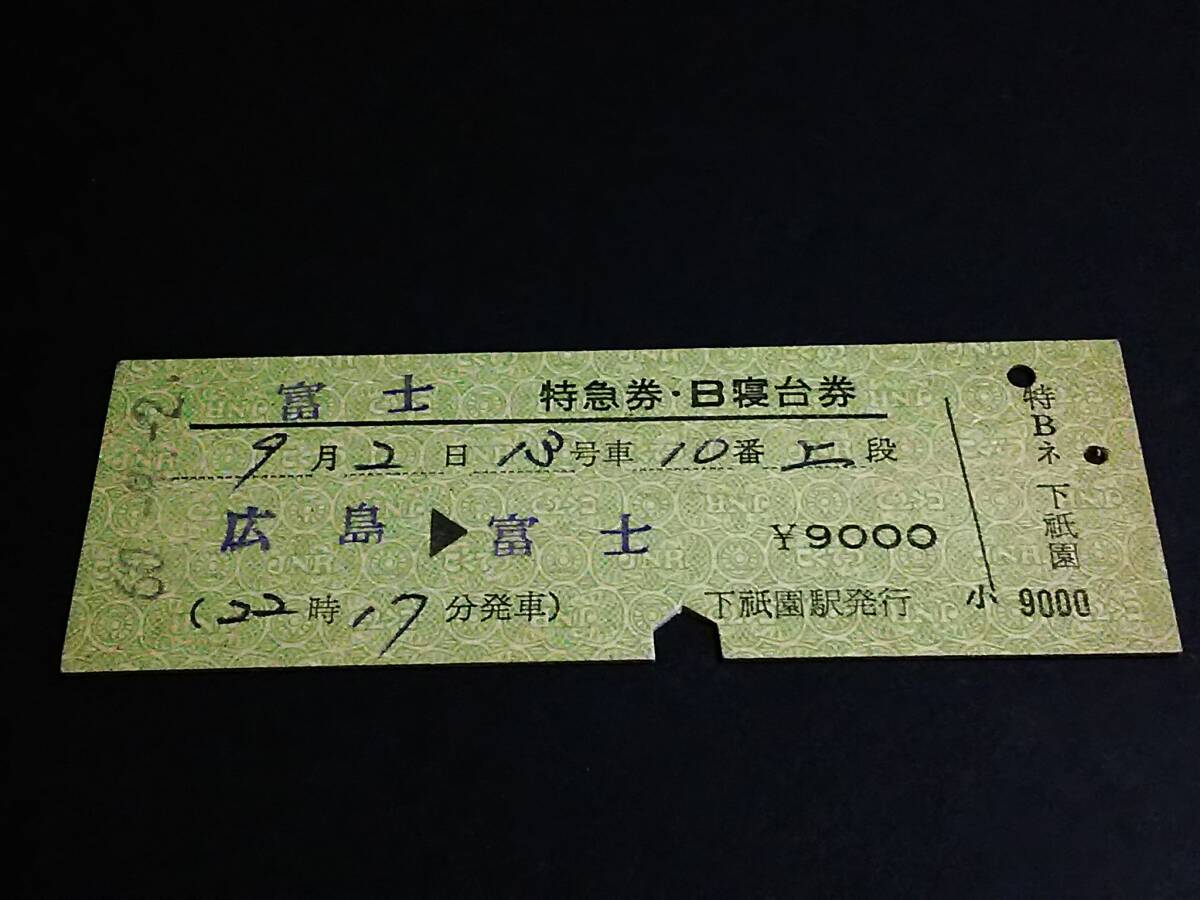 富士 特急券・B寝台券
9月2日13号車10番上段
広島▶富士 ¥9000
(22時17分発車) 下祇園駅発行
60.-9.-2.
特Bネ
下祇園
小 9000